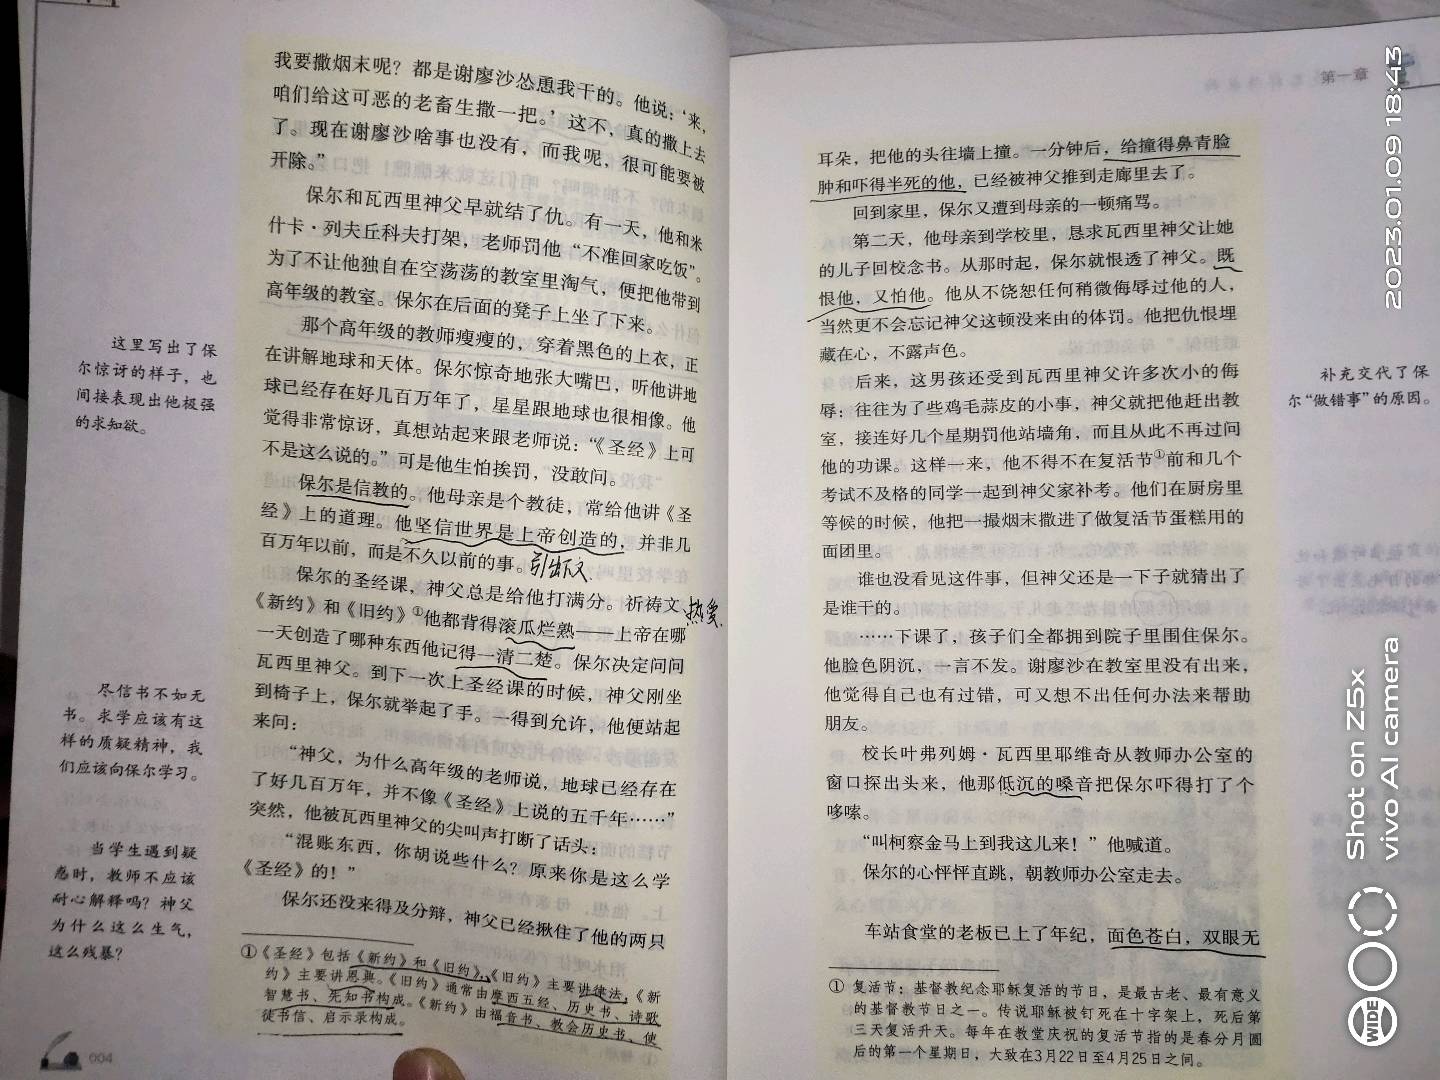 我要撒烟末呢？都是谢廖沙怂恿我干的。他说：‘来，
咱们给这可恶的老畜生撒一把。’这不，真的撒上去
了。现在谢廖沙啥事也没有，而我呢，很可能要被
开除。”
保尔和瓦西里神父早就结了仇。有一天，他和米
什卡·列夫丘科夫打架，老师罚他“不准回家吃饭”。
为了不让他独自在空荡荡的教室里淘气，便把他带到
高年级的教室。保尔在后面的凳子上坐了下来。
那个高年级的教师瘦瘦的，穿着黑色的上衣，正
在讲解地球和天体。保尔惊奇地张大嘴巴，听他讲地
球已经存在好几百万年了，星星跟地球也很相像。他
觉得非常惊讶，真想站起来跟老师说：“《圣经》上可
不是这么说的。”可是他生怕挨罚，没敢问。
保尔是信教的。他母亲是个教徒，常给他讲《圣
经》上的道理。他坚信世界是上帝创造的，并非几
百万年以前，而是不久以前的事。引出下文
保尔的圣经课，神父总是给他打满分。祈祷文、热爱.
《新约》和《旧约》①他都背得滚瓜烂熟——上帝在哪
一天创造了哪种东西他记得一清二楚。保尔决定问问
瓦西里神父。到下一次上圣经课的时候，神父刚坐
到椅子上，保尔就举起了手。一得到允许，他便站起
来问：
“神父，为什么高年级的老师说，地球已经存在
了好几百万年，并不像《圣经》上说的五千年……”
突然，他被瓦西里神父的尖叫声打断了话头：
“混账东西，你胡说些什么？原来你是这么学
《圣经》的！”
保尔还没来得及分辩，神父已经揪住了他的两只
①《圣经》包括《新约》和《旧约》，《旧约》主要讲律法，《新
约》主要讲恩典。《旧约》通常由摩西五经、历史书、诗歌
智慧书、先知书构成。《新约》由福音书、教会历史书、使
徒书信、启示录构成。
004
这里写出了保
尔惊讶的样子，也
间接表现出他极强
的求知欲。
尽信书不如无
书。求学应该有这
样的质疑精神，我
们应该向保尔学习。
当学生遇到疑
惑时，教师不应该
耐心解释吗？神父
为什么这么生气，
这么残暴？
第一章
耳朵，把他的头往墙上撞。一分钟后，给撞得鼻青脸
肿和吓得半死的他，已经被神父推到走廊里去了。
回到家里，保尔又遭到母亲的一顿痛骂。
第二天，他母亲到学校里，恳求瓦西里神父让她
的儿子回校念书。从那时起，保尔就恨透了神父。既
恨他，又怕他。他从不饶恕任何稍微侮辱过他的人，
当然更不会忘记神父这顿没来由的体罚。他把仇恨埋
藏在心，不露声色。
后来，这男孩还受到瓦西里神父许多次小的侮
辱：往往为了些鸡毛蒜皮的小事，神父就把他赶出教
室，接连好几个星期罚他站墙角，而且从此不再过问
他的功课。这样一来，他不得不在复活节①前和几个
考试不及格的同学一起到神父家补考。他们在厨房里
等候的时候，他把一撮烟末撒进了做复活节蛋糕用的
面团里。
谁也没看见这件事，但神父还是一下子就猜出了
是谁干的。
……下课了，孩子们全都拥到院子里围住保尔。
他脸色阴沉，一言不发。谢廖沙在教室里没有出来，
他觉得自己也有过错，可又想不出任何办法来帮助
朋友。
校长叶弗列姆·瓦西里耶维奇从教师办公室的
窗口探出头来，他那低沉的嗓音把保尔吓得打了个
哆嗦。
“叫柯察金马上到我这儿来！”他喊道。
保尔的心怦怦直跳，朝教师办公室走去。
车站食堂的老板已上了年纪，面色苍白，双眼无
① 复活节：基督教纪念耶稣复活的节日，是最古老、最有意义
的基督教节日之一。传说耶稣被钉死在十字架上，死后第
三天复活升天。每年在教堂庆祝的复活节指的是春分月圆
后的第一个星期日，大致在3月22日至4月25日之间。
补充交代了保
尔“做错事”的原因。
2023.01.09 18:43
Shot on Z5x
vivo AI camera
WIDE